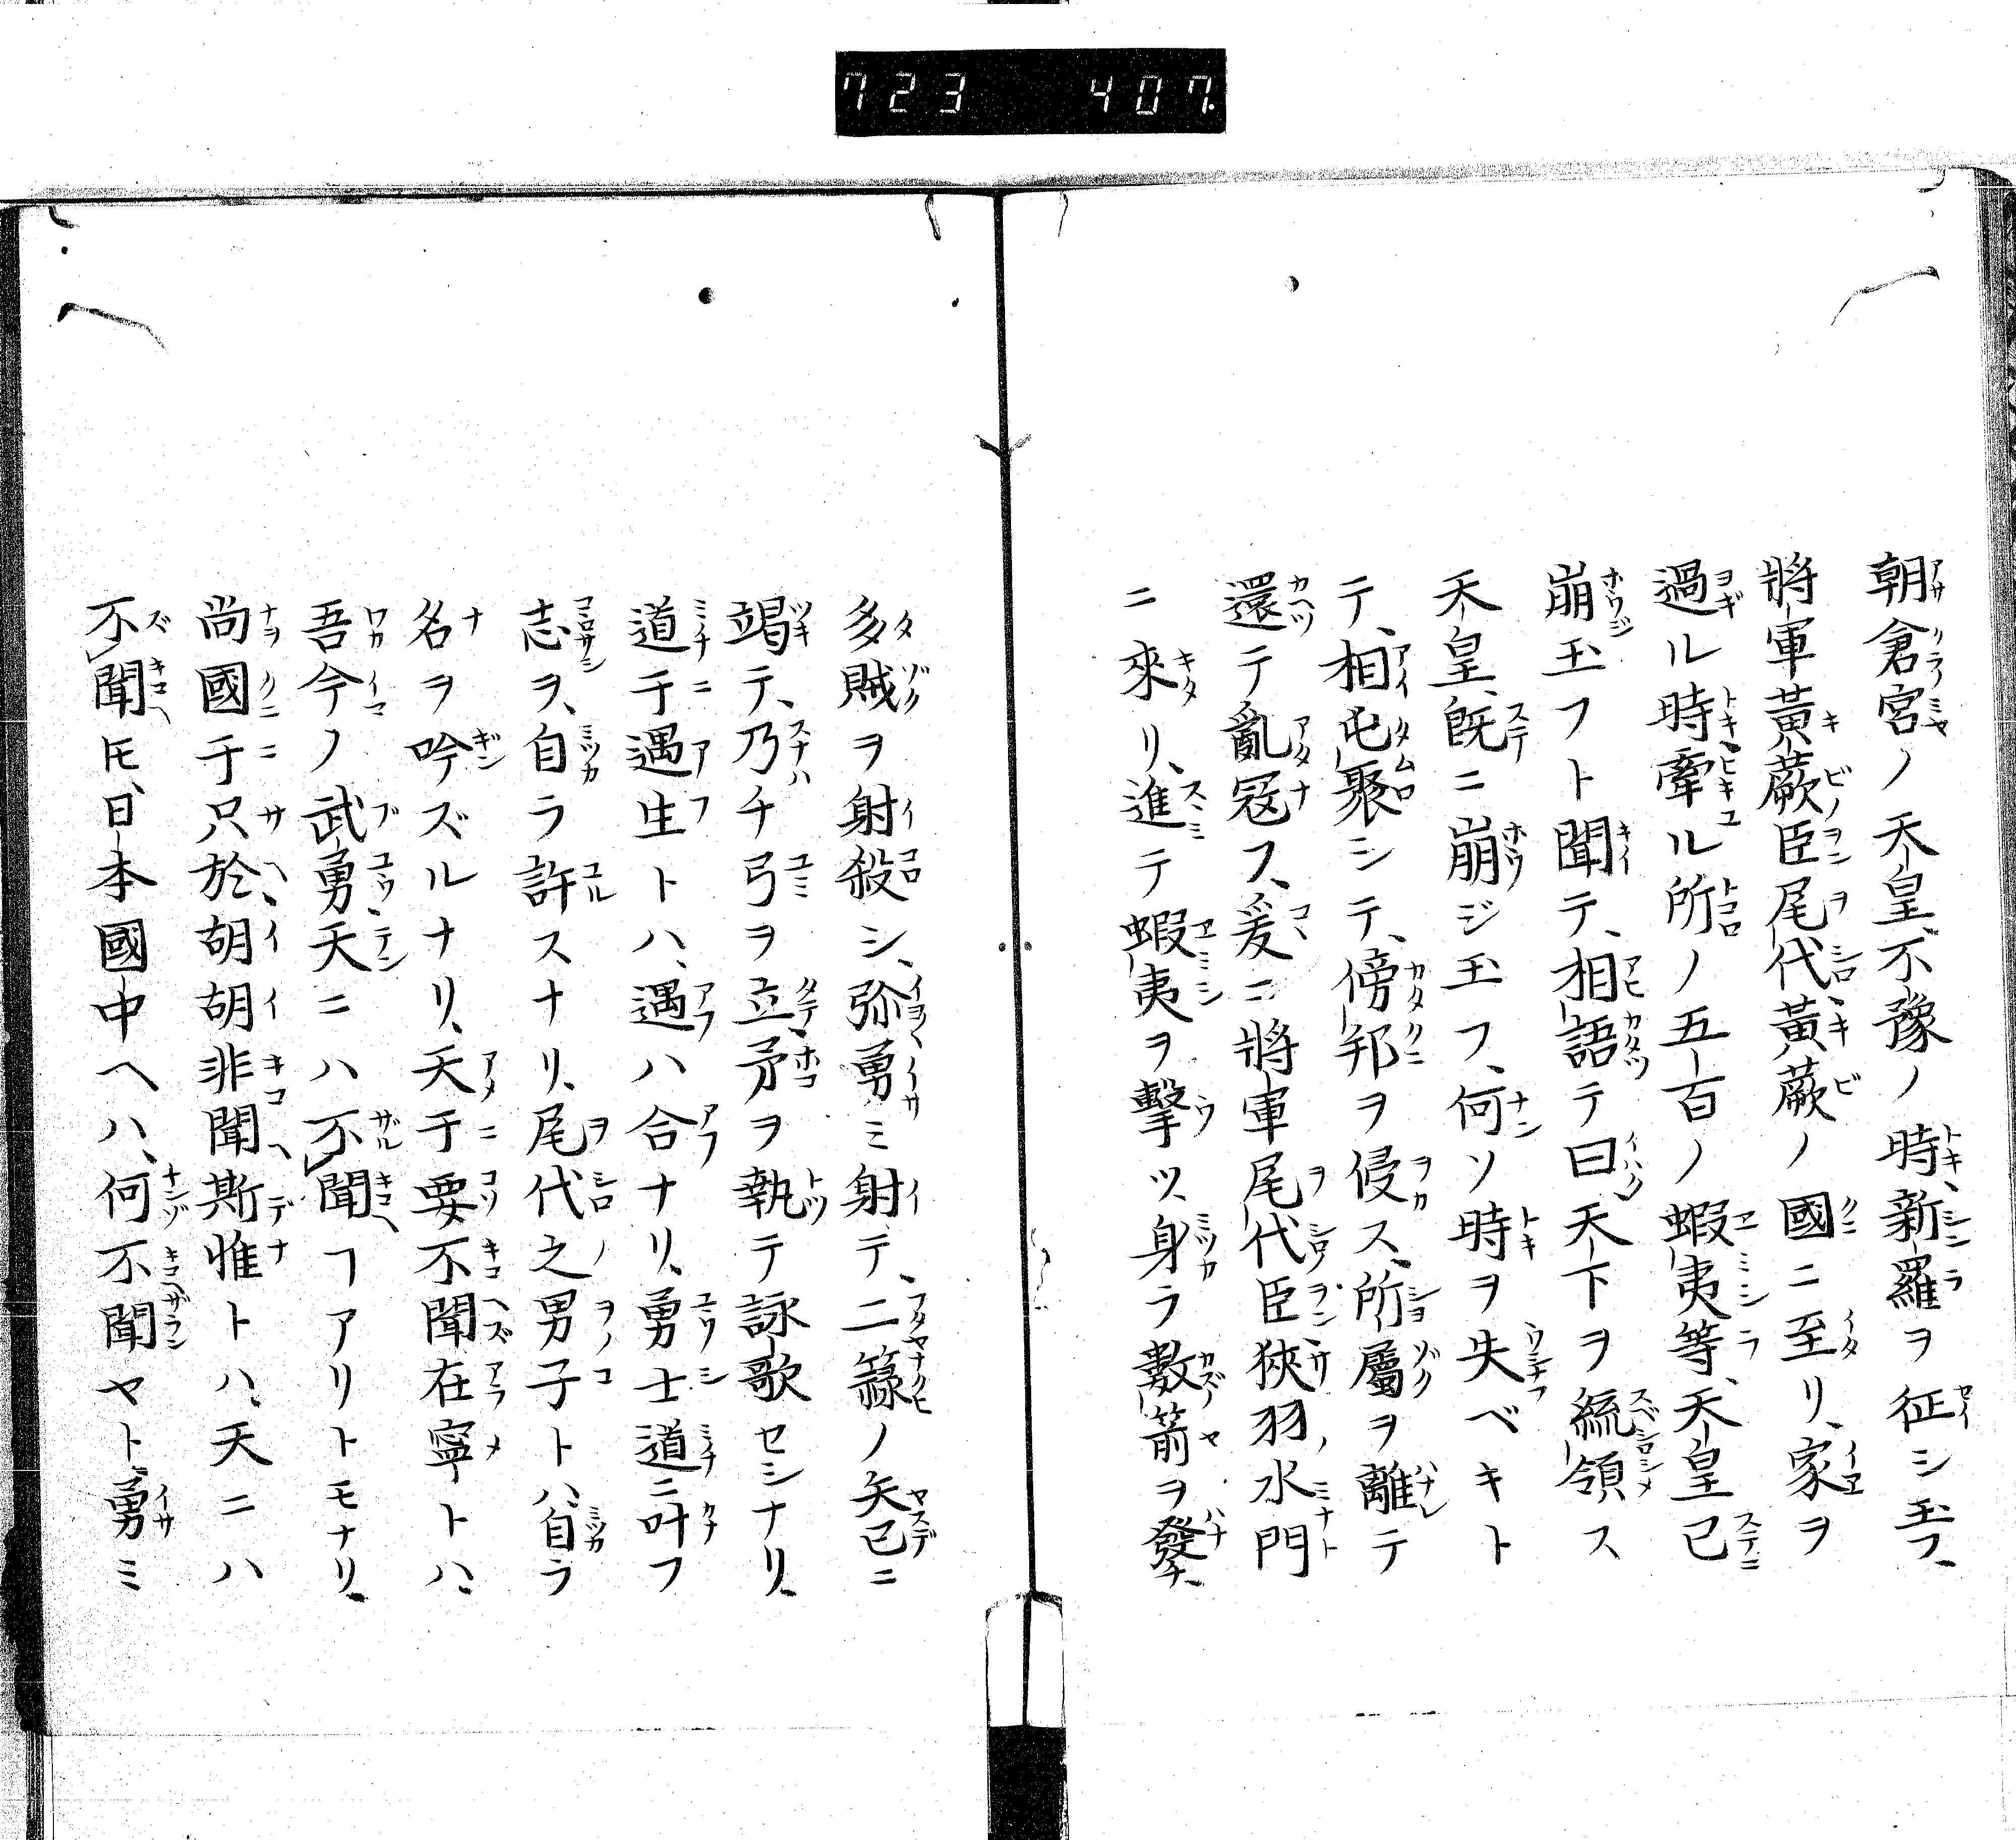 723 407
朝倉宮ノ天皇、不豫ノ時、新羅ヲ征シ玉フ、
將軍黃蕨臣尾代黃蕨ノ國ニ至リ、家ヲ
過ル時、牽ル所ノ五百ノ蝦夷等、天皇已
崩玉フト聞テ、相語テ曰天下ヲ統領ス
天皇、既ニ崩ジ玉フ、何ソ時ヲ失ベキト
テ、相屯聚シテ、傍邦ヲ侵ス、所屬ヲ離テ
還テ亂寇フ、爰ニ將軍尾代臣狹羽ノ水門
ニ來リ、進テ蝦夷ヲ擊ツ、身ラ數箭ヲ發チ、
多賊ヲ射殺シ、弥勇ミ射テ、二籙ノ矢已ニ
竭テ、乃チ弓ヲ立、矛ヲ執テ詠歌セシナリ、
道于遇生トハ、遇ハ合ナリ、勇士道ニ叶フ
志ヲ、自ラ許スナリ、尾代之男子トハ、自ラ
名ヲ吟ズルナリ、天于要不聞在寧トハ、
吾今ノ武勇、天ニハ不聞ヿアリトモナリ、
尚國于只於胡胡非聞斯惟トハ、天ニハ
不聞𪜈、日本國中ヘハ、何不聞ヤト、勇ミ